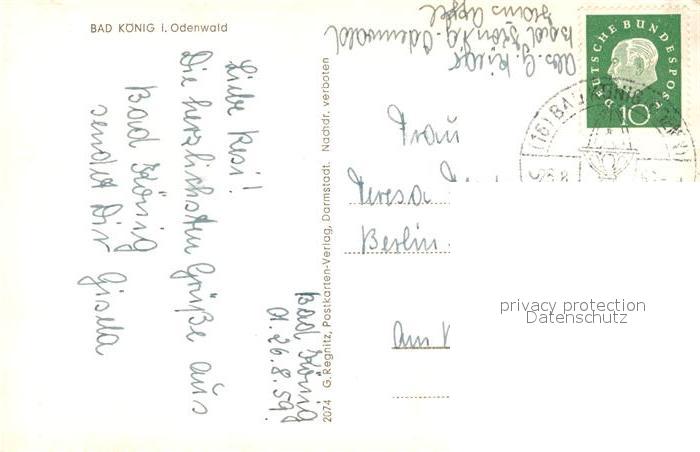 BAD KÖNIG i. Odenwald
Bad König
d. 26.8.59.
Liebe Resi!
Die herzlichsten Grüße aus
Bad König
sendet Dir Gisela
2074 G. Regnitz, Postkarten-Verlag, Darmstadt. Nachdr. verboten
Abs. G. Krieger
Bad König-Odenwald
Haus Apfel
DEUTSCHE BUNDESPOST
10
(16) BAD KÖNIG
Frau
Teresa
Berlin
Am
privacy protection
Datenschutz